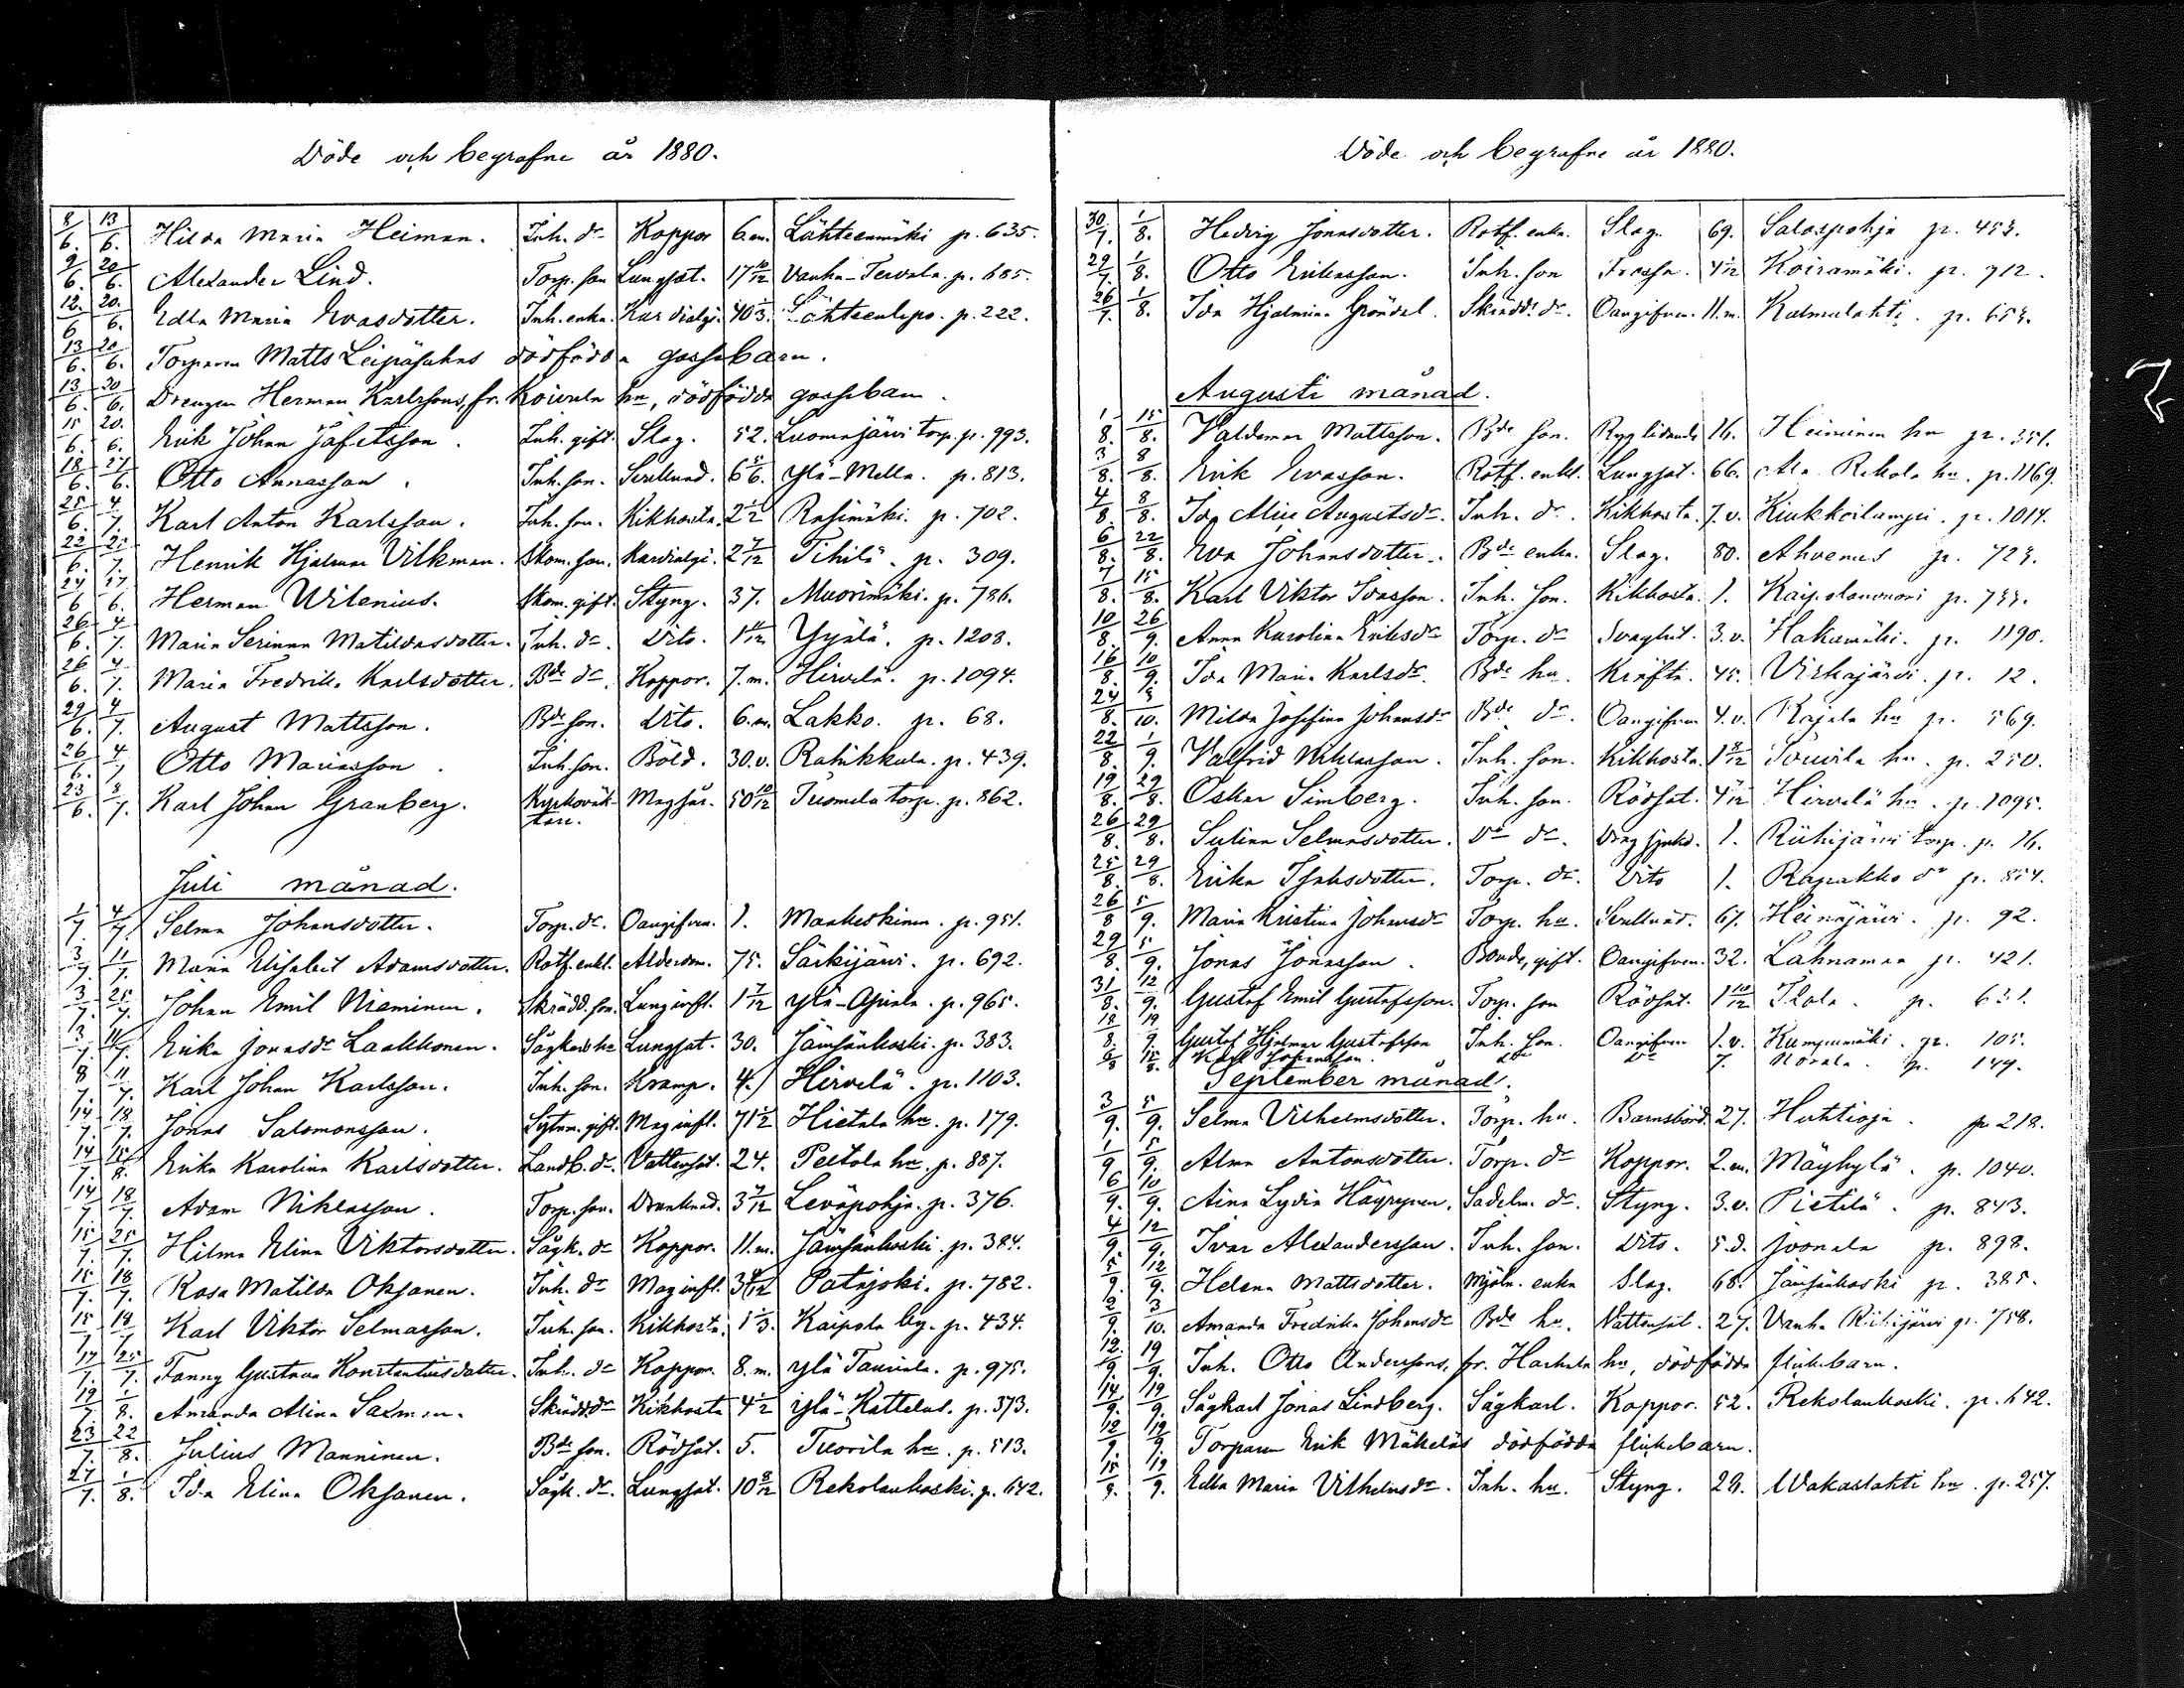 Döde och begrafne år 1880.
8/6. 13/6. Hilda Maria Heiman. Inh. dr Koppor 6.m. Lähteenmäki p. 635.
9/6. 20/6. Alexander Lind. Torp. son Lungsot. 17 10/12 Vanha-Tervala. p. 685.
12./6 20./6. Edla Maria Evasdotter. Inh. enka. Kardialgi. 40 1/3. Lähteenlepo. p. 222.
13/6. 20/6. Torparen Matts Leipäsuhns dödfödda gossebarn.
13/6. 20/6. Drengen Herman Karlssons, fr. Koivula hn, dödfödda gossebarn.
15/6. 20./6. Erik Johan Jafetsson. Inh. gift. Slag. 52. Luomajärvi torp. p. 993.
18/6. 27/6. Otto Annasson. Inh. son. Scullund. 6 5/6. Ylä-Mella. p. 813.
25/6. 4/7. Karl Anton Karlsson. Inh. son. Kikhosta. 2 1/2 Rasimäki. p. 702.
22/6. 25/7. Henrik Hjalmar Vilkman. Skom. son. Kardialgi. 2 7/12 Pihilä. p. 309.
24/6 27/6. Herman Wilenius. Skom. gift. Styng. 37. Muorimäki. p. 786.
26/6. 4/7. Maria Serinna Matildasdotter. Inh. dr Dito. 1 11/12 Yijälä. p. 1208.
26/6. 4/7. Maria Fredrika Karlsdotter. Bde dr. Koppor. 7.m. Hirvelä. p. 1094.
29/6. 4/7. August Mattsson. Bde son. Dito. 6.m. Lakko. p. 68.
26/6. 4/7 Otto Mariasson. Inh. son. Böld. 30.v. Rahikkala. p. 439.
23/6. 8/7. Karl Johan Granberg. Kyrkoväk- Magsår. 50 10/12 Tuomela torp. p. 862.
tare.
Juli månad.
1/7. 4/7. Selma Johansdotter. Torp. dr. Oangifven. 1. Mankeskinen. p. 951.
3/7. 11/7. Maria Elisabet Adamsdotter. Rotf. enkl. Ålderdom. 75. Särkijärvi. p. 692.
3/7. 25/7. Johan Emil Nieminen. Skrädd. son. Lunginfl. 1 7/12 Ylä-Ajiala. p. 965.
3/7. 11/7. Erika Jonasdr Laakkonen. Sågkarls hu Lungsot. 30. Jämsänkoski. p. 383.
8/7. 11/7. Karl Johan Karlsson. Inh. son. Kramp. 4. Hirvelä. p. 1103.
14/7. 18/7. Jonas Salomonsson. Sytnm. gift. Mag infl. 71 1/2 Hietala hn. p. 179.
14/7. 15/8. Erika Karolina Karlsdotter. Landb. dr. Vattensot. 24. Peitola hn. p. 887.
14/7 18/7. Adam Niklasson. Torp. son. Drunknad. 3 7/12 Leväpohja. p. 376.
15/7. 25/7. Hilma Elina Viktorsdotter. Sågk. dr Koppor. 11.m. Jämsänkoski. p. 384.
15/7. 18/7. Rosa Matilda Oksanen. Inh. dr Mag infl. Patajoki. p. 782.
15/7 18/7 Karl Viktor Selmasson. Inh. son. Kikhosta. 1 1/3. Kaipola by. p. 434.
17/7. 25/7. Fanny Gustava Konstantinsdotter. Inh. dr Koppor. 8.m. Ylä Tauriala. p. 975.
19/7 1/8. Amanda Alina Salmin. Skrädd. dr Kikhosta 4 1/2 Ylä-Kattelus. p. 373.
23/7. 22/8. Julius Manninen. Bde son. Rödsot. 5. Tuorila hn. p. 513.
27/7. 1/8. Ida Elina Oksanen. Sågk. dr. Lungsot. 10 8/12 Rekolankoski. p. 642.
Döde och begrafne år 1880.
30/7. 1/8. Hedvig Jonasdotter. Rotf. enka. Slag. 69. Salospohja p. 453.
29/7. 1/8. Otto Eriksson. Inh. son Trossn. Koiramäki. p. 712.
26/7. 1/8. Ida Hjalmina Gröndal. Skrädd. dr. Oangifven. 11.m. Kalmulahti. p. 653.
Augusti månad.
1/8. 15/8. Valdemar Mattsson. Bde son. Rygg lidande 16. Heininen hn p. 351.
3/8. 8/8. Erik Evasson. Rotf. enkl. Lungsot. 66. Ala Rekola hn. p. 1169.
4/8. 8/8. Ida Alise Augustsdr. Inh. dr. Kikhosta. 7.v. Kiukkoilampi. p. 1014.
6/8. 22/8. Eva Johansdotter. Bde enka. Slag. 80. Ahvenus p. 723.
7/8. 15/8. Karl Viktor Idasson. Inh. son. Kikhosta. 1. Kaipolanvuori p. 733.
10/8. 26/9. Anna Karolina Eriksdr Torp. dr Svaghet. 3.v. Hakamäki. p. 1190.
16/8. 10/9. Ida Maria Karlsdr. Bde hu. Kräfta. 45. Virkajärvi. p. 12.
24/8. 3/10. Milda Josefina Johansdr Bde dr. Oangifven 4.v. Kajala hn p. 569.
22/8. 1/9. Valfrid Niklasson. Inh. son. Kikhosta. 1 8/12 Souvila hn. p. 250.
19/8. 29/8. Oskar Simberg. Inh. son. Rödsot. Hirvelä hn. p. 1095.
26/8. 29/8. Sulina Selmasdotter. Do dr. Dragsjukd. 1. Riihijärvi torp. p. 16.
25/8. 29/8. Erika Isaksdotter. Torp. dr. Dito 1. Rapakko do p. 854.
26/8 5/9. Maria Kristina Johansdr Torp. hu. Scullund. 67. Heinäjärvi. p. 92.
29/8. 5/9. Jonas Jonasson. Bonde, gift. Oangifven. 32. Lahnamaa p. 421.
31/8. 12/9. Gustaf Emil Gustafsson. Torp. son Rödsot. 1 10/12 Tkola. p. 631.
18/8. 19/9. Gustaf Hjalmar Gustafsson Inh. son. Oangifven 1.v. Kumpumäki. p. 105.
6/8 15/8. Karl Johansson. do do 7. Norala. p. 149.
September månad.
3/9. 5/9. Selma Vilhelmsdotter. Torp. hu. Barnsbörd. 27. Huhtioja. p 218.
1/9. 5/9. Alma Antonsdotter. Torp. dr Koppor. 2.m. Mäyhylä. p. 1040.
6/9. 10/9. Aina Lydia Häyrynen. Sadelm. dr. Styng. 3.v. Pietilä. p. 843.
4/9 12/9. Ivar Alexandersson. Inh. son. Dito. 5.d. Joonala p. 898.
5/9. 12/9. Helena Mattsdotter. Mjöln. enka Slag. 68. Jämsänkoski p. 385.
2/9. 3/10. Amanda Fredrika Johansdr Bde hu. Vattensot. 27. Vanha Riihijärvi p. 758.
12./9. 19/9. Inh. Otto Anderssons, fr. Harhala hn, dödfödda flickebarn.
14/9. 19/9. Sågkarl Jonas Lindberg. Sågkarl. Koppor. 52. Rekolankoski. p. 642.
12/9. 19/9. Torparen Erik Mäkeläs dödfödda flickebarn.
15/9. 19/9. Edla Maria Vilhelmsdr. Inh. hu. Styng. 28. Wakaslahti hn. p. 257.